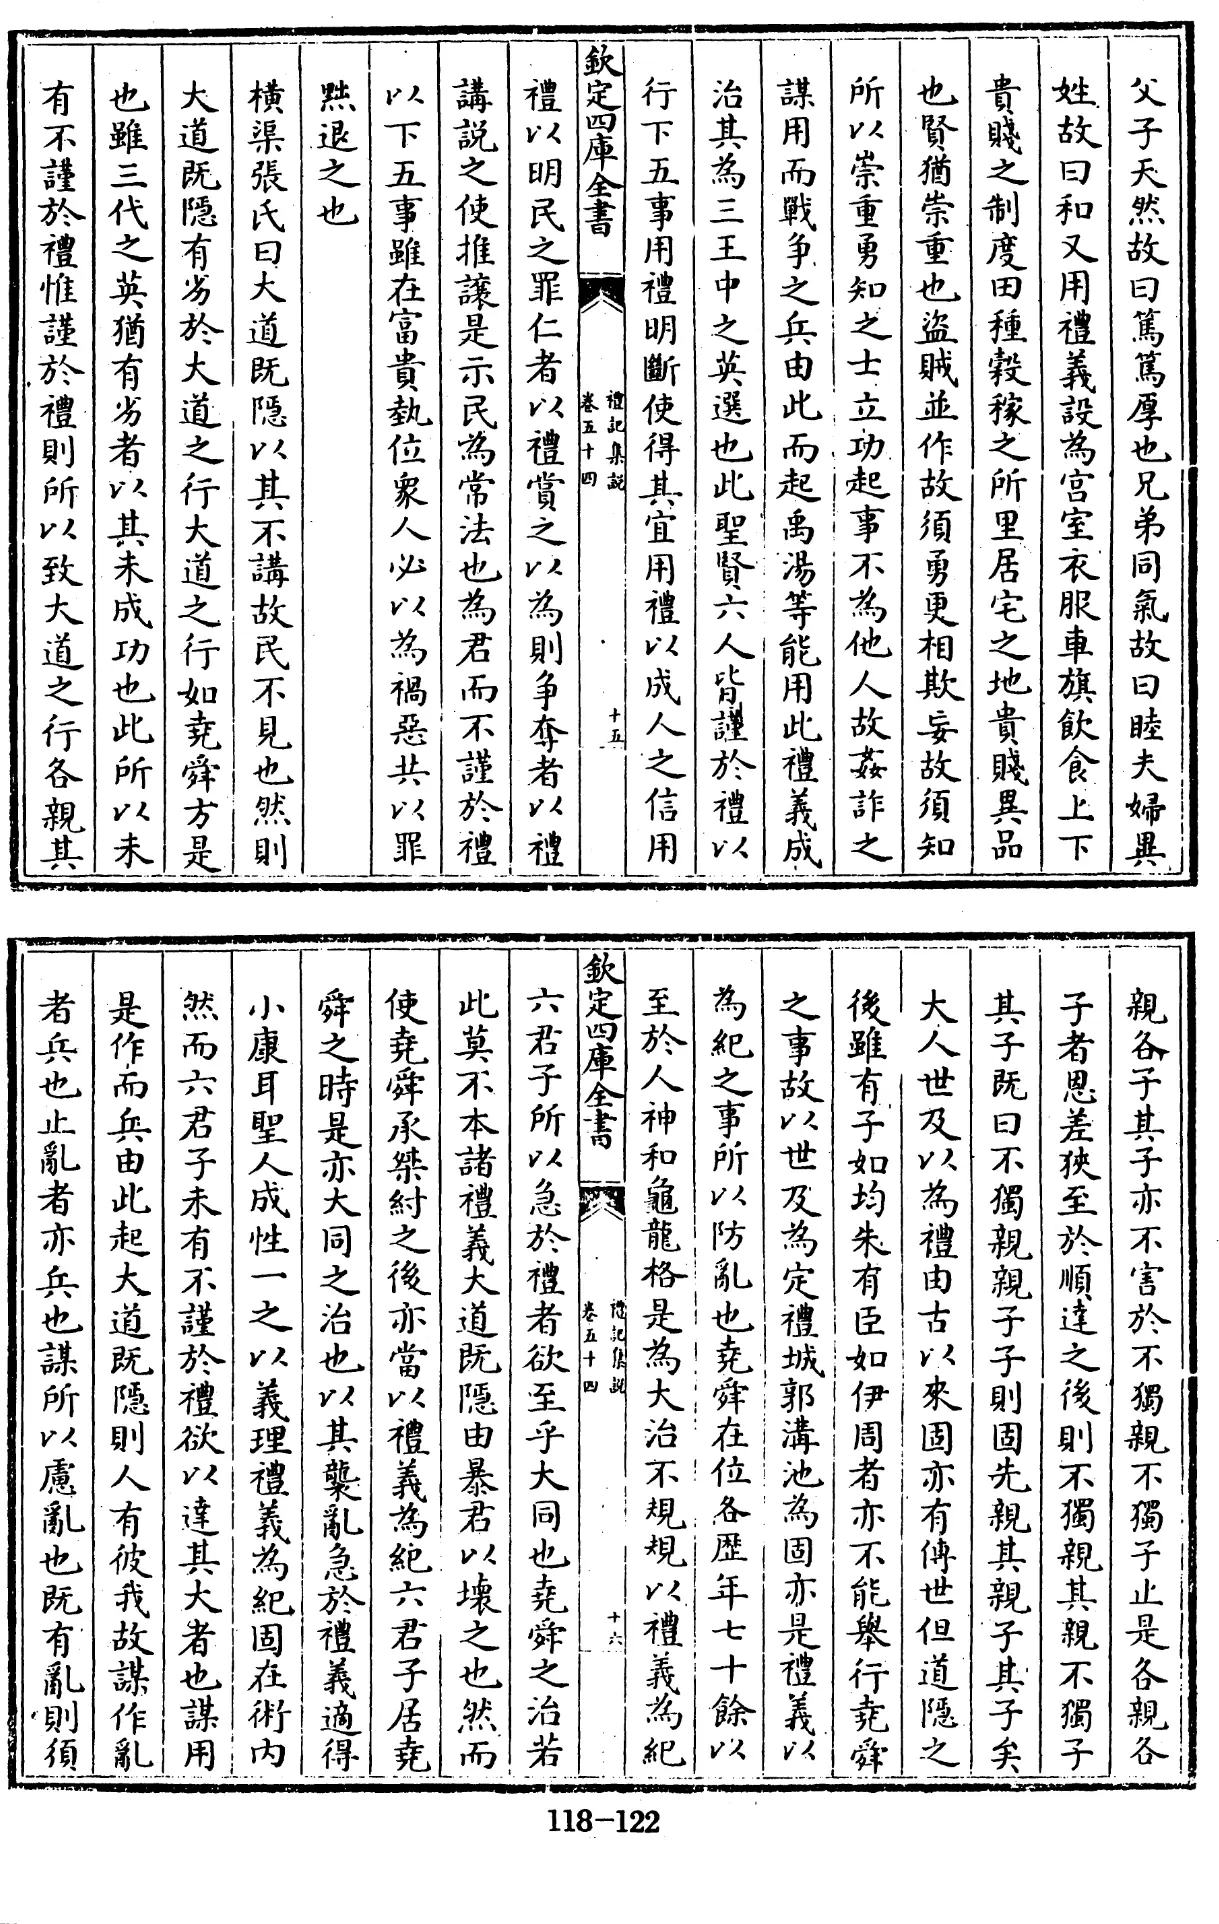 父子天然故曰篤篤厚也兄弟同氣故曰睦夫婦異
姓故曰和又用禮義設為宫室衣服車旗飲食上下
貴賤之制度田種穀稼之所里居宅之地貴賤異品
也賢猶崇重也盜賊並作故須勇更相欺妄故須知
所以崇重勇知之士立功起事不為他人故姦詐之
謀用而戰争之兵由此而起禹湯等能用此禮義成
治其為三王中之英選也此聖賢六人皆謹於禮以
行下五事用禮明斷使得其宜用禮以成人之信用
欽定四庫全書
禮記集說
卷五十四
十五
禮以明民之罪仁者以禮賞之以為則争奪者以禮
講説之使推讓是示民為常法也為君而不謹於禮
以下五事雖在富貴埶位衆人必以為禍惡共以罪
黜退之也
橫渠張氏曰大道既隱以其不講故民不見也然則
大道既隱有劣於大道之行大道之行如堯舜方是
也雖三代之英猶有劣者以其未成功也此所以未
有不謹於禮惟謹於禮則所以致大道之行各親其
親各子其子亦不害於不獨親不獨子止是各親各
子者恩差狹至於順達之後則不獨親其親不獨子
其子既曰不獨親親子子則固先親其親子其子矣
大人世及以為禮由古以來固亦有傳世但道隱之
後雖有子如均朱有臣如伊周者亦不能舉行堯舜
之事故以世及為定禮城郭溝池為固亦是禮義以
為紀之事所以防亂也堯舜在位各歷年七十餘以
至於人神和龜龍格是為大治不規規以禮義為紀
欽定四庫全書
禮記集說
卷五十四
十六
六君子所以急於禮者欲至乎大同也堯舜之治若
此莫不本諸禮義大道既隱由暴君以壞之也然而
使堯舜承桀紂之後亦當以禮義為紀六君子居堯
舜之時是亦大同之治也以其襲亂急於禮義適得
小康耳聖人成性一之以義理禮義為紀固在術内
然而六君子未有不謹於禮欲以達其大者也謀用
是作而兵由此起大道既隱則人有彼我故謀作亂
者兵也止亂者亦兵也謀所以慮亂也既有亂則須
118-122